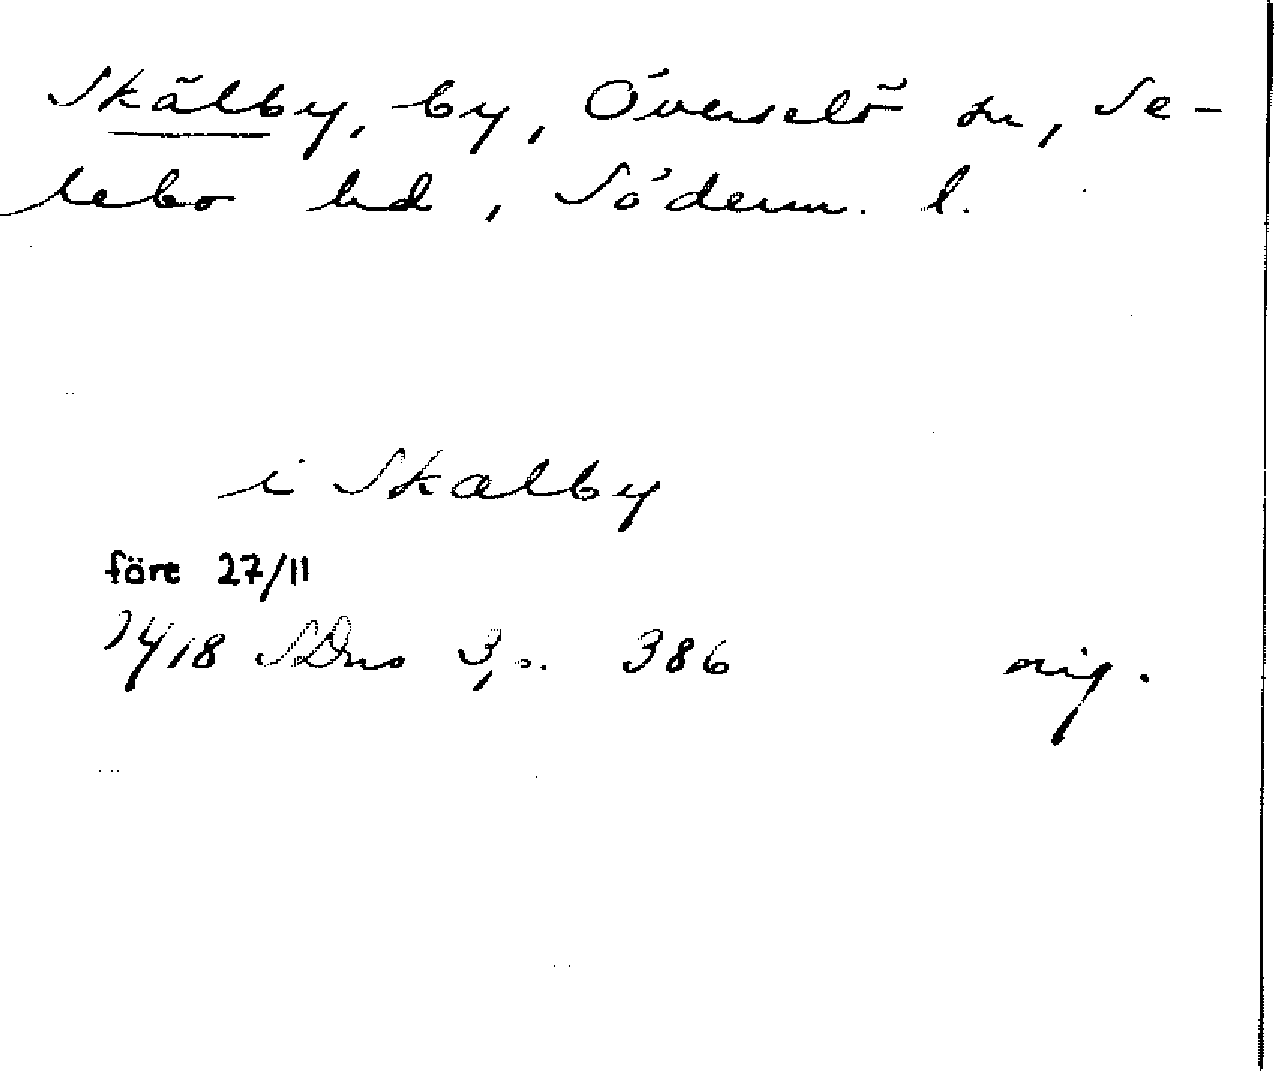 Skälby, by, Överselö sn, Se-
lebo hd, Söderm. l.
i Skalby
före 27/11
1418 SDns 3, s. 386 orig.